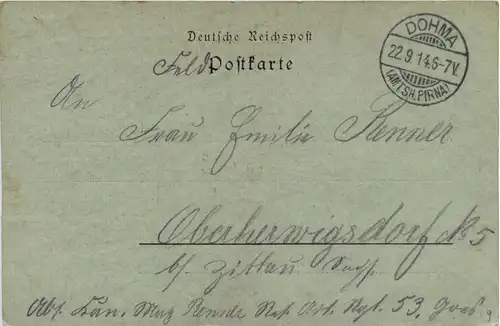 Deutsche Reichspost
Feld Postkarte
DOHMA
22.9.14.6-7V.
(AMTSH.PIRNA)
An
Frau Emilie Renner
Oberherwigsdorf No 5
b/ Zittau Sachs.
Abs. Kan. Max Renner Res. Art. Rgt. 53,